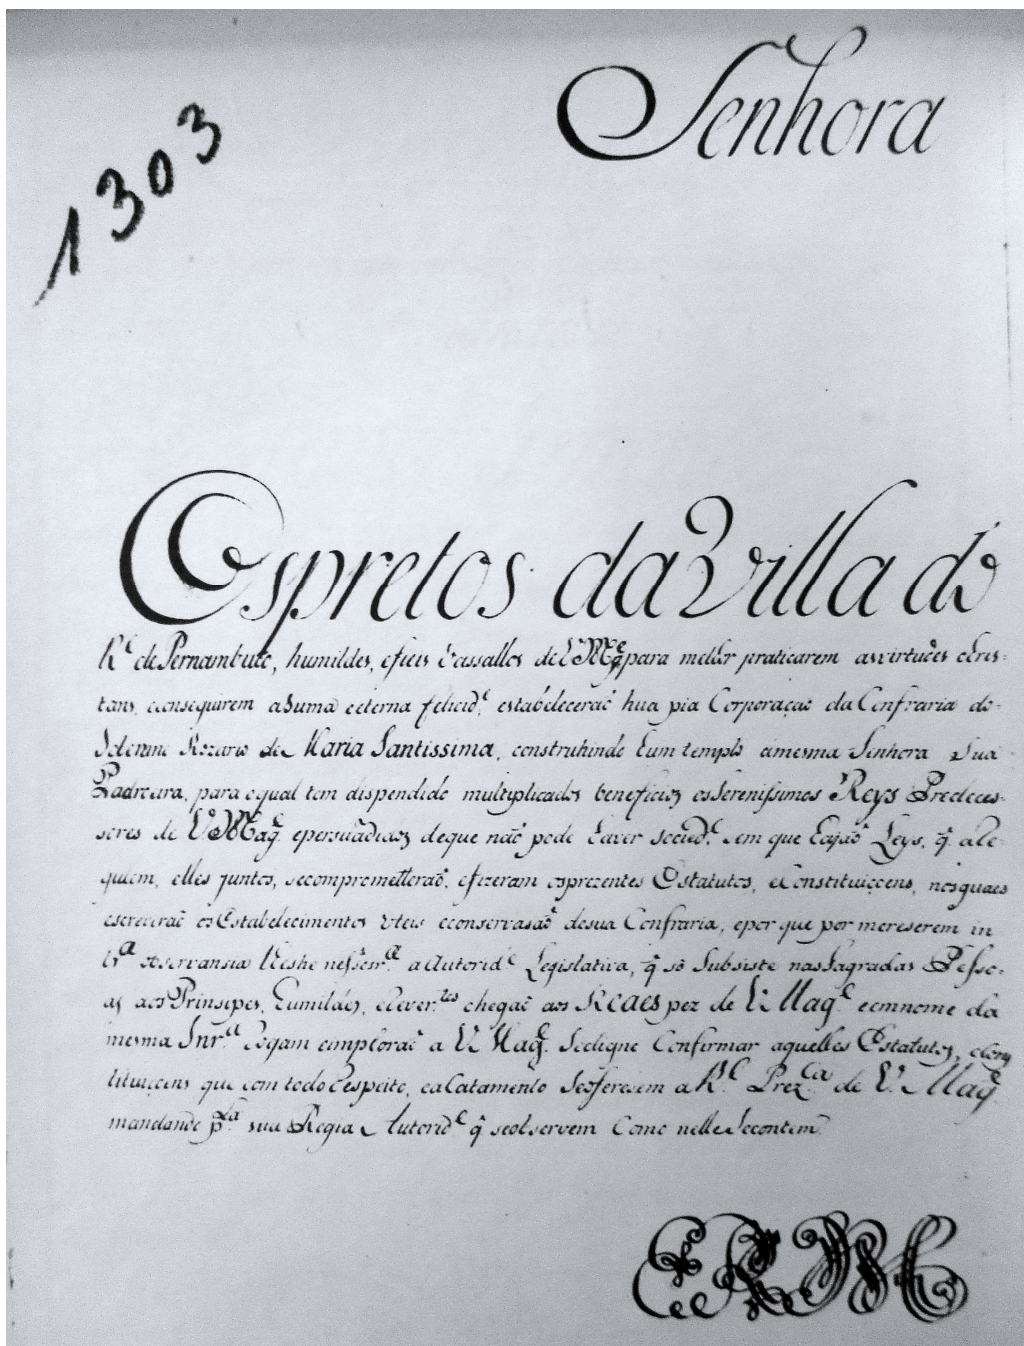 Senhora
1303
Os pretos da Villa do
R.e de Pernambuco, humildes, e fieis vassallos de V. Mag.e para melhor praticarem as virtudes chris-
tans, e conseguirem a Suma e eterna felicid.e estabeleceraõ hua pia Corporaçaõ da Confraria do
Solemne Rozario de Maria Santissima, construhindo hum templo á mesma Senhora Sua
Padroeira, para o qual tem dispendido multiplicados beneficios os Serenissimos Reys Predeces-
sores de V. Mag.e e persuádidos de que naõ pode haver socied.e sem que hajaõ Leys, q̃ a le-
guiem, elles juntos, se comprometteraõ, e fizeram os prezentes Estatutos, e Constituiçoens, nos quaes
escreveraõ os Estabelecimentos uteis e conservasaõ de sua Confraria, e por que por mereserem in
tr.a observansia lhes he nessesr.a a Autorid.e Legislativa, q̃ só Subsiste nas Sagradas Pesso-
as dos Prinsipes, humildes, e rever.tes chegaõ aos Reaes pez de V. Mag.e e em nome da
mesma Snr.a Rogam e imploraõ a V. Mag.e Se digne Confirmar aquelles Estatutos, e Cons
tituiçoens que com todo Respeito, e a Catamento Se oferesem a R.l Prez.ca de V. Mag.e
mandando p.la sua Regia Autorid.e q̃ se observem Como nelle Se contem.
E R M C